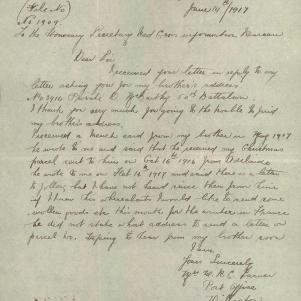 June 14th 1917
(File No)
No 1909.
To the Honorary Secretary Red Cross information Bureau
Dear Sir
Received your letter in reply to my
letter asking you for my brother's address
No 2916 Private D. McCarthy 50th Battalion.
I thank you very much for going to the trouble to find
my brother's address.
I received a trench card from my brother on Aug 1917
he wrote to me and said that he received my Christmas
parcel sent to him on Oct 16th 1916 from Adelaide
he wrote to me on Feb 16th 1917 and said there is a letter
to follow, but I have not heard since then from him
if I knew his whereabouts I would like to send some
woollen goods etc this month for the winter in France
he did not state what address to send a letter or
parcel to. Hoping to hear from my brother soon
I am
Yours Sincerely
Mrs W. H. C.
Post Office